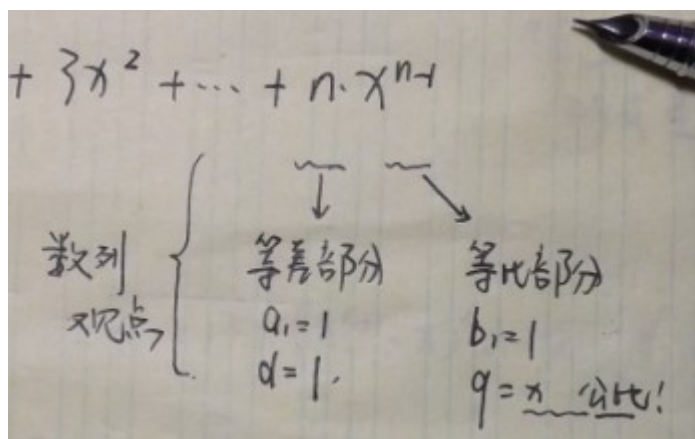 + 3x² + ··· + n·xⁿ⁻¹
数列
观点,
等差部分
a₁=1
d=1.
等比部分
b₁=1
q=x 公比!